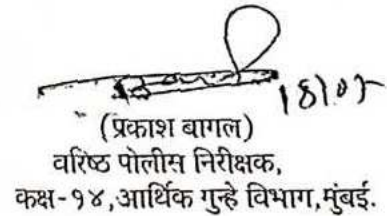 (प्रकाश बागल)
वरिष्ठ पोलीस निरीक्षक,
कक्ष-१४,आर्थिक गुन्हे विभाग,मुंबई.